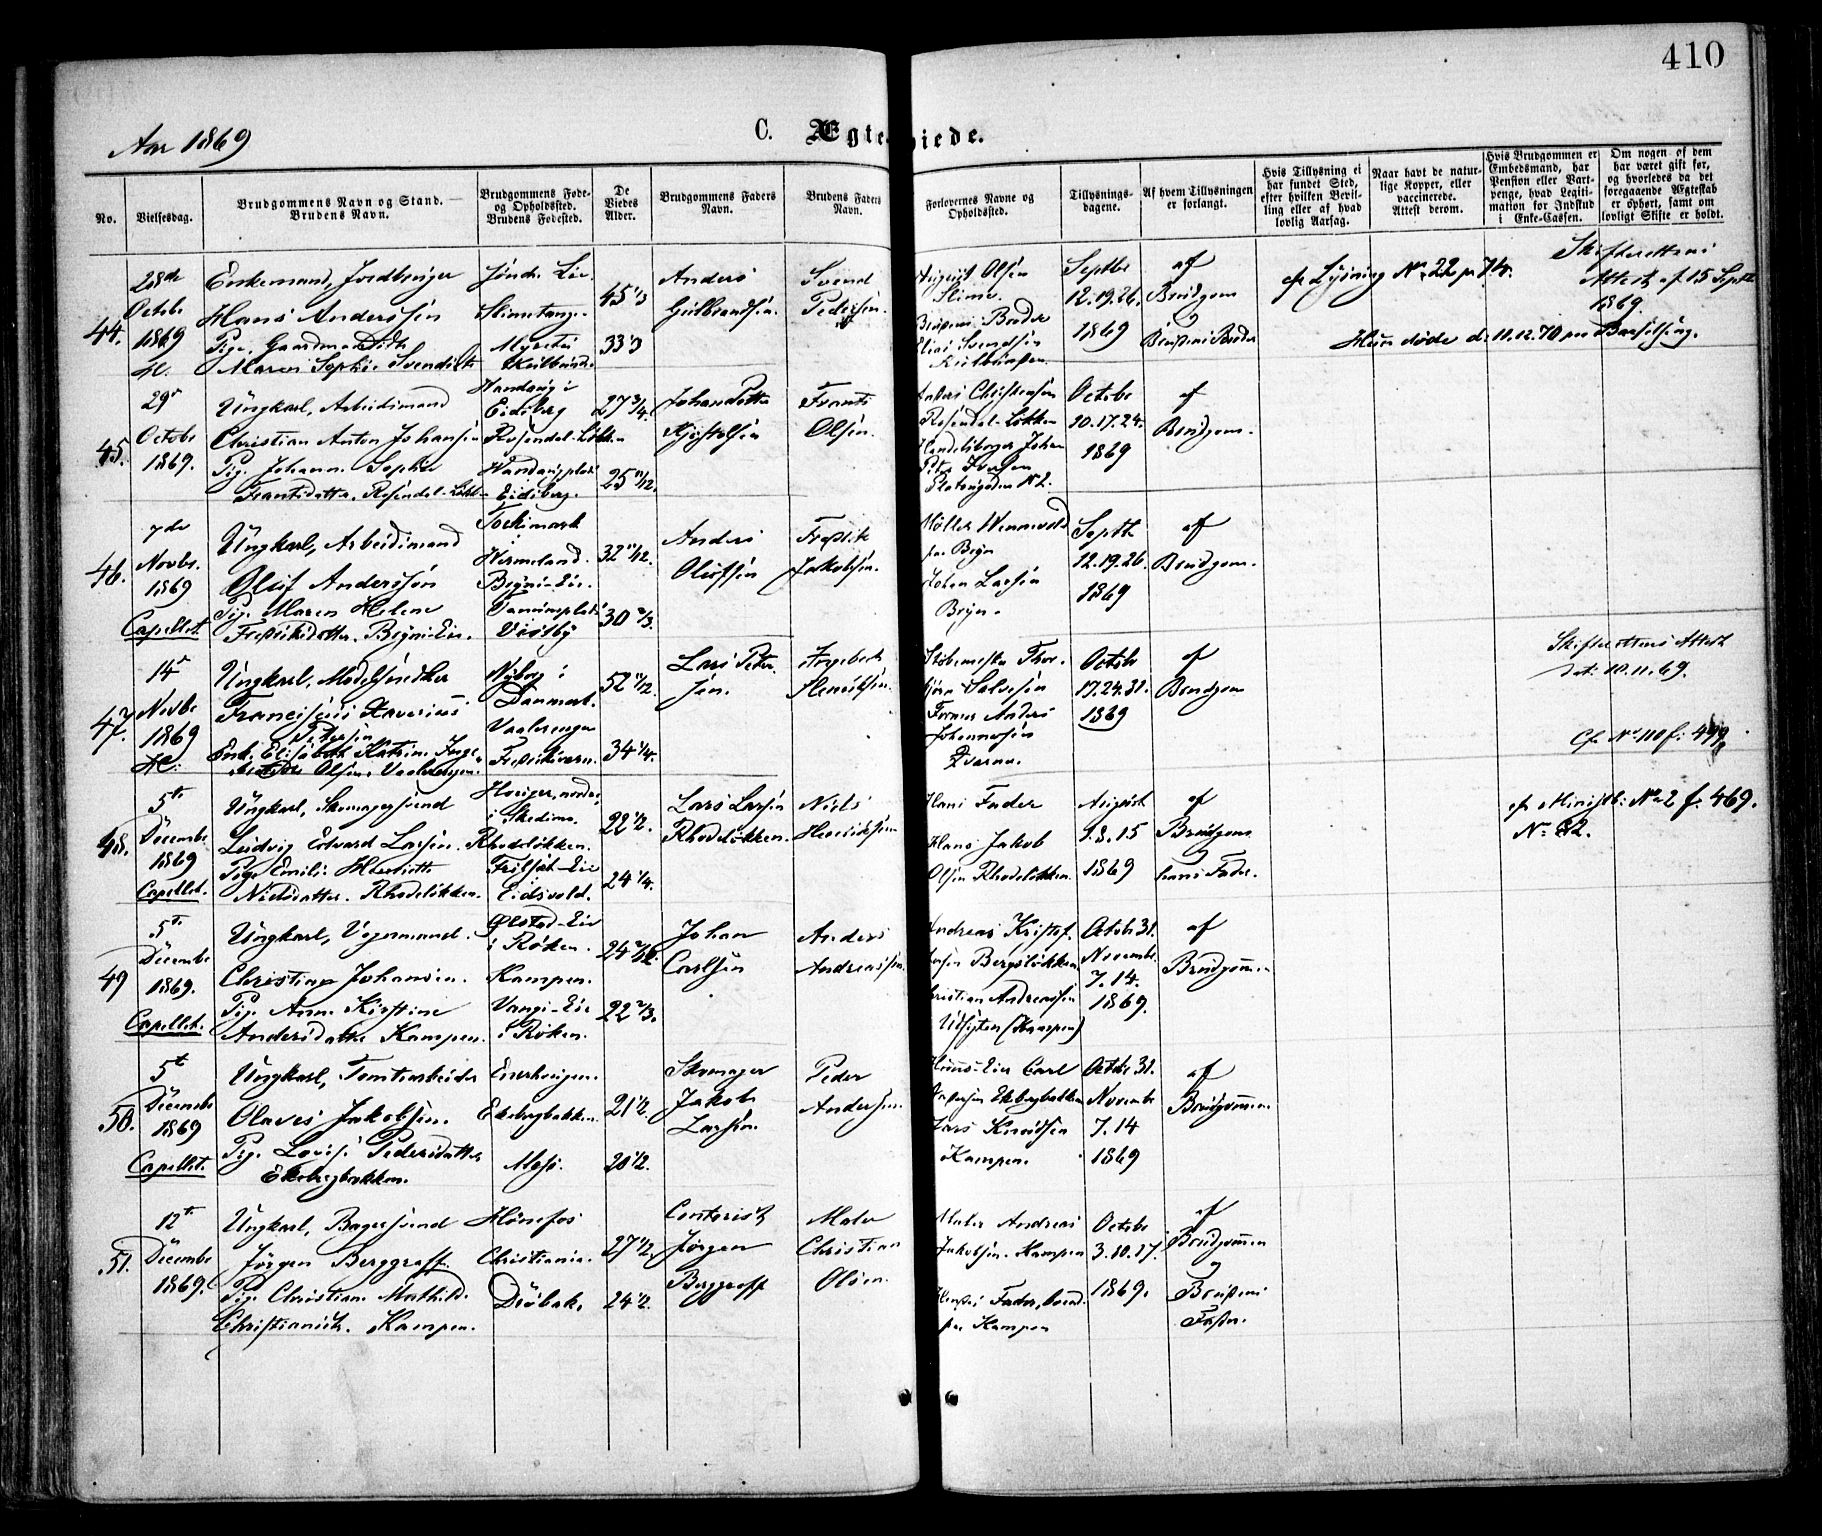 410
Aar 1869
C. Ægteviede.
No.
Vielsesdag.
Brudgommens Navn og Stand. —
Brudens Navn.
Brudgommens Føde-
og Opholdssted.
Brudens Fødested.
De
Viedes
Alder.
Brudgommens Faders
Navn.
Brudens Faders
Navn.
Forlovernes Navne og
Opholdssted.
Tillysnings-
dagene.
Af hvem Tillysningen
er forlangt.
Hvis Tillysning ei
har fundet Sted,
efter hvilken Bevil-
ling eller af hvad
lovlig Aarsag.
Naar havt de natur-
lige Kopper, eller
vaccinerede.
Attest derom.
Hvis Brudgommen er
Embedsmand, har
Pension eller Vart-
penge, hvad Legiti-
mation for Indskud
i Enke-Cassen.
Om nogen af dem
har været gift før,
og hvorledes da det
foregaaende Ægteskab
er ophørt, samt om
lovligt Skifte er holdt.
44.
28de
Octobr
1869
Enkemand, Jordbruger
Hans Anderssen
Pige, Gaardm. Datt.
Maren Sophie Svendsdt.
45 1/3
33 1/3
Anders
Gulbrandsen.
Svend
Pedersen.
August Olsen
Brudens Broder
Elias Svendsen
Septbr
12.19.26.
1869
af
Brudgom
Brudens Broder
cfr Lysning No 22 pr 74.
Skifterettens
Attest af 15 Septb
1869.
Hun døde d. 11.12.70 paa Barselseng.
45.
29de
Octobr
1869.
Ungkarl, Arbeidsmand
Christian Anton Johansen
Pige Johanne Sophie
Frantsdatter, Rosendal-Løkk.
Eidsberg
Rosendal-Løkken
Eidsberg.
27 3/4.
25 11/12.
Frants
Olsen.
Anders Christensen
Rosendal-Løkken
Johan
Peter Iversen
Platousgaden No 2.
Octobr
10.17.24.
1869
af
Brudgom.
46.
7de
Novbr.
1869
Capellet.
Ungkarl, Arbeidsmand
Oluf Anderssen
Pige Maren Helene
Fredriksdatter. Bryns-Eie.
Værmeland.
Bryns-Eie.
Vestby
32 11/12.
30 2/3.
Anders
Olufsen
Fredrik
Jakobsen.
Møller Wennevold
paa Bryn
Johan Larsen
Bryn.
Septb
12.19.26.
1869
af
Brudgom.
47.
14de
Novbr
1869
Ungkarl, Modelsnedker
Franciscus Xaverius
Petersen
Enke Elisabeth Katrine Inge-
Olsen. Vaalerengen.
Nyborg i
Danmark.
Vaalerengen
Fredriksværn.
52 11/12.
34 1/4.
Lars Peter-
sen.
Ingebret
Henriksen.
Støbemester Thor-
bjørn Salvesen
Former Anders
Johannesen
Kværner.
Octobr
17.24.31.
1869
af
Brudgom
Skifterettens Attest
dat. 10.11.69.
Cfr No 110 f: 499
48.
5te
Decembr
1869
Capellet.
Ungkarl, Skomagersvend
Ludvig Edvard Larsen.
Pige Emilie Henriette
Nielsdatter. Rhodeløkken.
i Skedsmo.
Rhodeløkken.
Eidsvold.
22 1/2.
24 1/4.
Lars Larsen
Rhodeløkken.
Niels
Henriksen
Hans Fader
Hans Jakob
Olsen Rhodeløkken.
August
1.8.15
1869
af
Brudgom
hans Fader
cfr Ministb: No 2 f. 469.
No 82.
49
5te
Decembr
1869.
Capellet.
Ungkarl, Vognmand.
Christian Johansen.
Pige Anne Kirstine
Andersdatter Kampen.
Ølstad-Eie
i Røken.
Kampen.
Vangs-Eie
i Røken.
22 2/3.
Johan
Carlsen
Anders
Andreassen.
Andreas Kristof-
fersen Bergsløkken
Christian Andreassen
Udsigten (Kampen)
Octobr 31.
Novembr
7.14.
1869.
af
Brudgommen
50.
5te
Decembr
1869
Capellet.
Ungkarl, Tomtearbeider
Olaves Jakobsen.
Pige Lovise Pedersdatter
Ekebergbakken.
Enerhaugen.
Ekebergbakken.
Moss.
21 1/2.
20 1/2.
Skomager
Jakob
Larsen.
Peder
Andersen
Huus-Eier Carl
Ekebergbakken
Lars Knudsen
Kampen.
Octobr 31.
Novembr
7.14
1869
af
Brudgommen
51.
12te
Decembr
1869.
Ungkarl, Bagersvend
Jørgen Berggraff.
Pige Christiane Mathilde
Christiansdt. Kampen.
Hønefos
Christiania.
Drøbak.
27 1/2.
24 1/2.
Contorist
Jørgen
Berggraff
Maler
Christian
Olsen
Maler Andreas
Jakobsen. Kampen
Brudens Fader, boend.
paa Kampen
Octobr
3.10.17.
1869.
af
Brudgommen
og
Brudens
Fader.